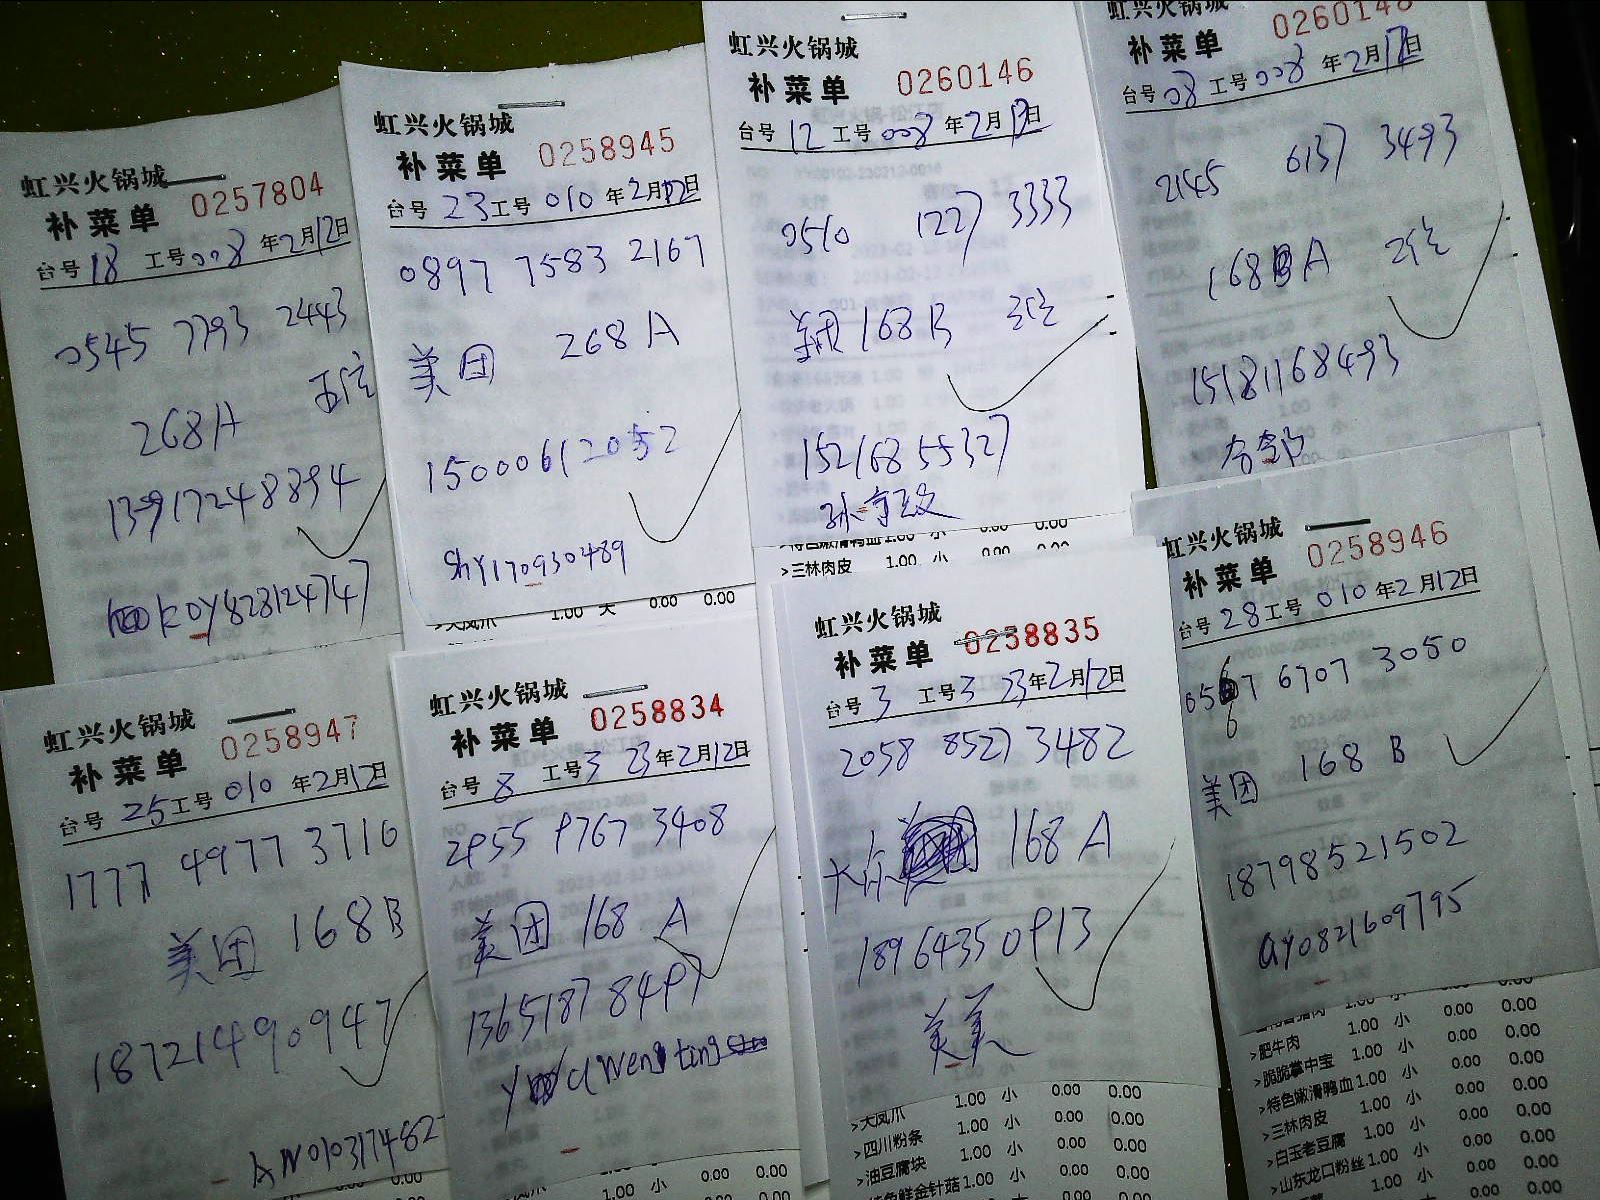 虹兴火锅城
补菜单 0257804
台号 18 工号 008 年2月12日
0545 7793 2443
268A
13917248894
koy823124747
虹兴火锅城
补菜单 0258945
台号 23 工号 010 年2月12日
0897 7583 2167
美团 268A
15000612052
shy170930489
1.00 大 0.00 0.00
虹兴火锅城
补菜单 0260146
台号 12 工号 008 年2月12日
0510 1227 3333
美团 168B
15216855327
>特色嫩滑鸭血 1.00 小 0.00 0.00
>三林肉皮 1.00 小 0.00 0.00
虹兴火锅城
补菜单
台号 08 工号 008 年2月12日
2145 6137 3493
168 A
15181168493
虹兴火锅城
补菜单 0258947
台号 25 工号 010 年2月12日
1777 4977 3710
美团 168B
18721490947
虹兴火锅城
补菜单 0258834
台号 8 工号 3 23年2月12日
2955 9767 3408
美团 168 A
13651878497
1.00 小 0.00 0.00
虹兴火锅城
补菜单 0258835
台号 3 工号 3 23年2月12日
2058 8527 3482
168 A
18964350913
美美
>大凤爪 1.00 小 0.00 0.00
>四川粉条 1.00 小 0.00 0.00
>油豆腐块 1.00 小 0.00 0.00
特色鲜金针菇 1.00 小 0.00 0.00
虹兴火锅城
补菜单 0258946
台号 28 工号 010 年2月12日
6707 3050
美团 168 B
18798521502
ay0821609795
>肥牛肉 1.00 小 0.00 0.00
>脆脆掌中宝 1.00 小 0.00 0.00
>特色嫩滑鸭血 1.00 小 0.00 0.00
>三林肉皮 1.00 小 0.00 0.00
>白玉老豆腐 1.00 小 0.00 0.00
>山东龙口粉丝 1.00 小 0.00 0.00